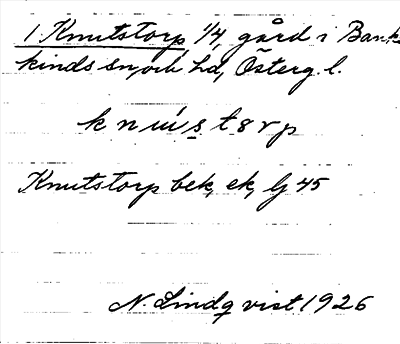 1 Knutstorp 1/4, gård i Bank-
kinds sn och hd, Österg. l.
knústorp
Knutstorp bek, ek, lj 45
N. Lindqvist 1926